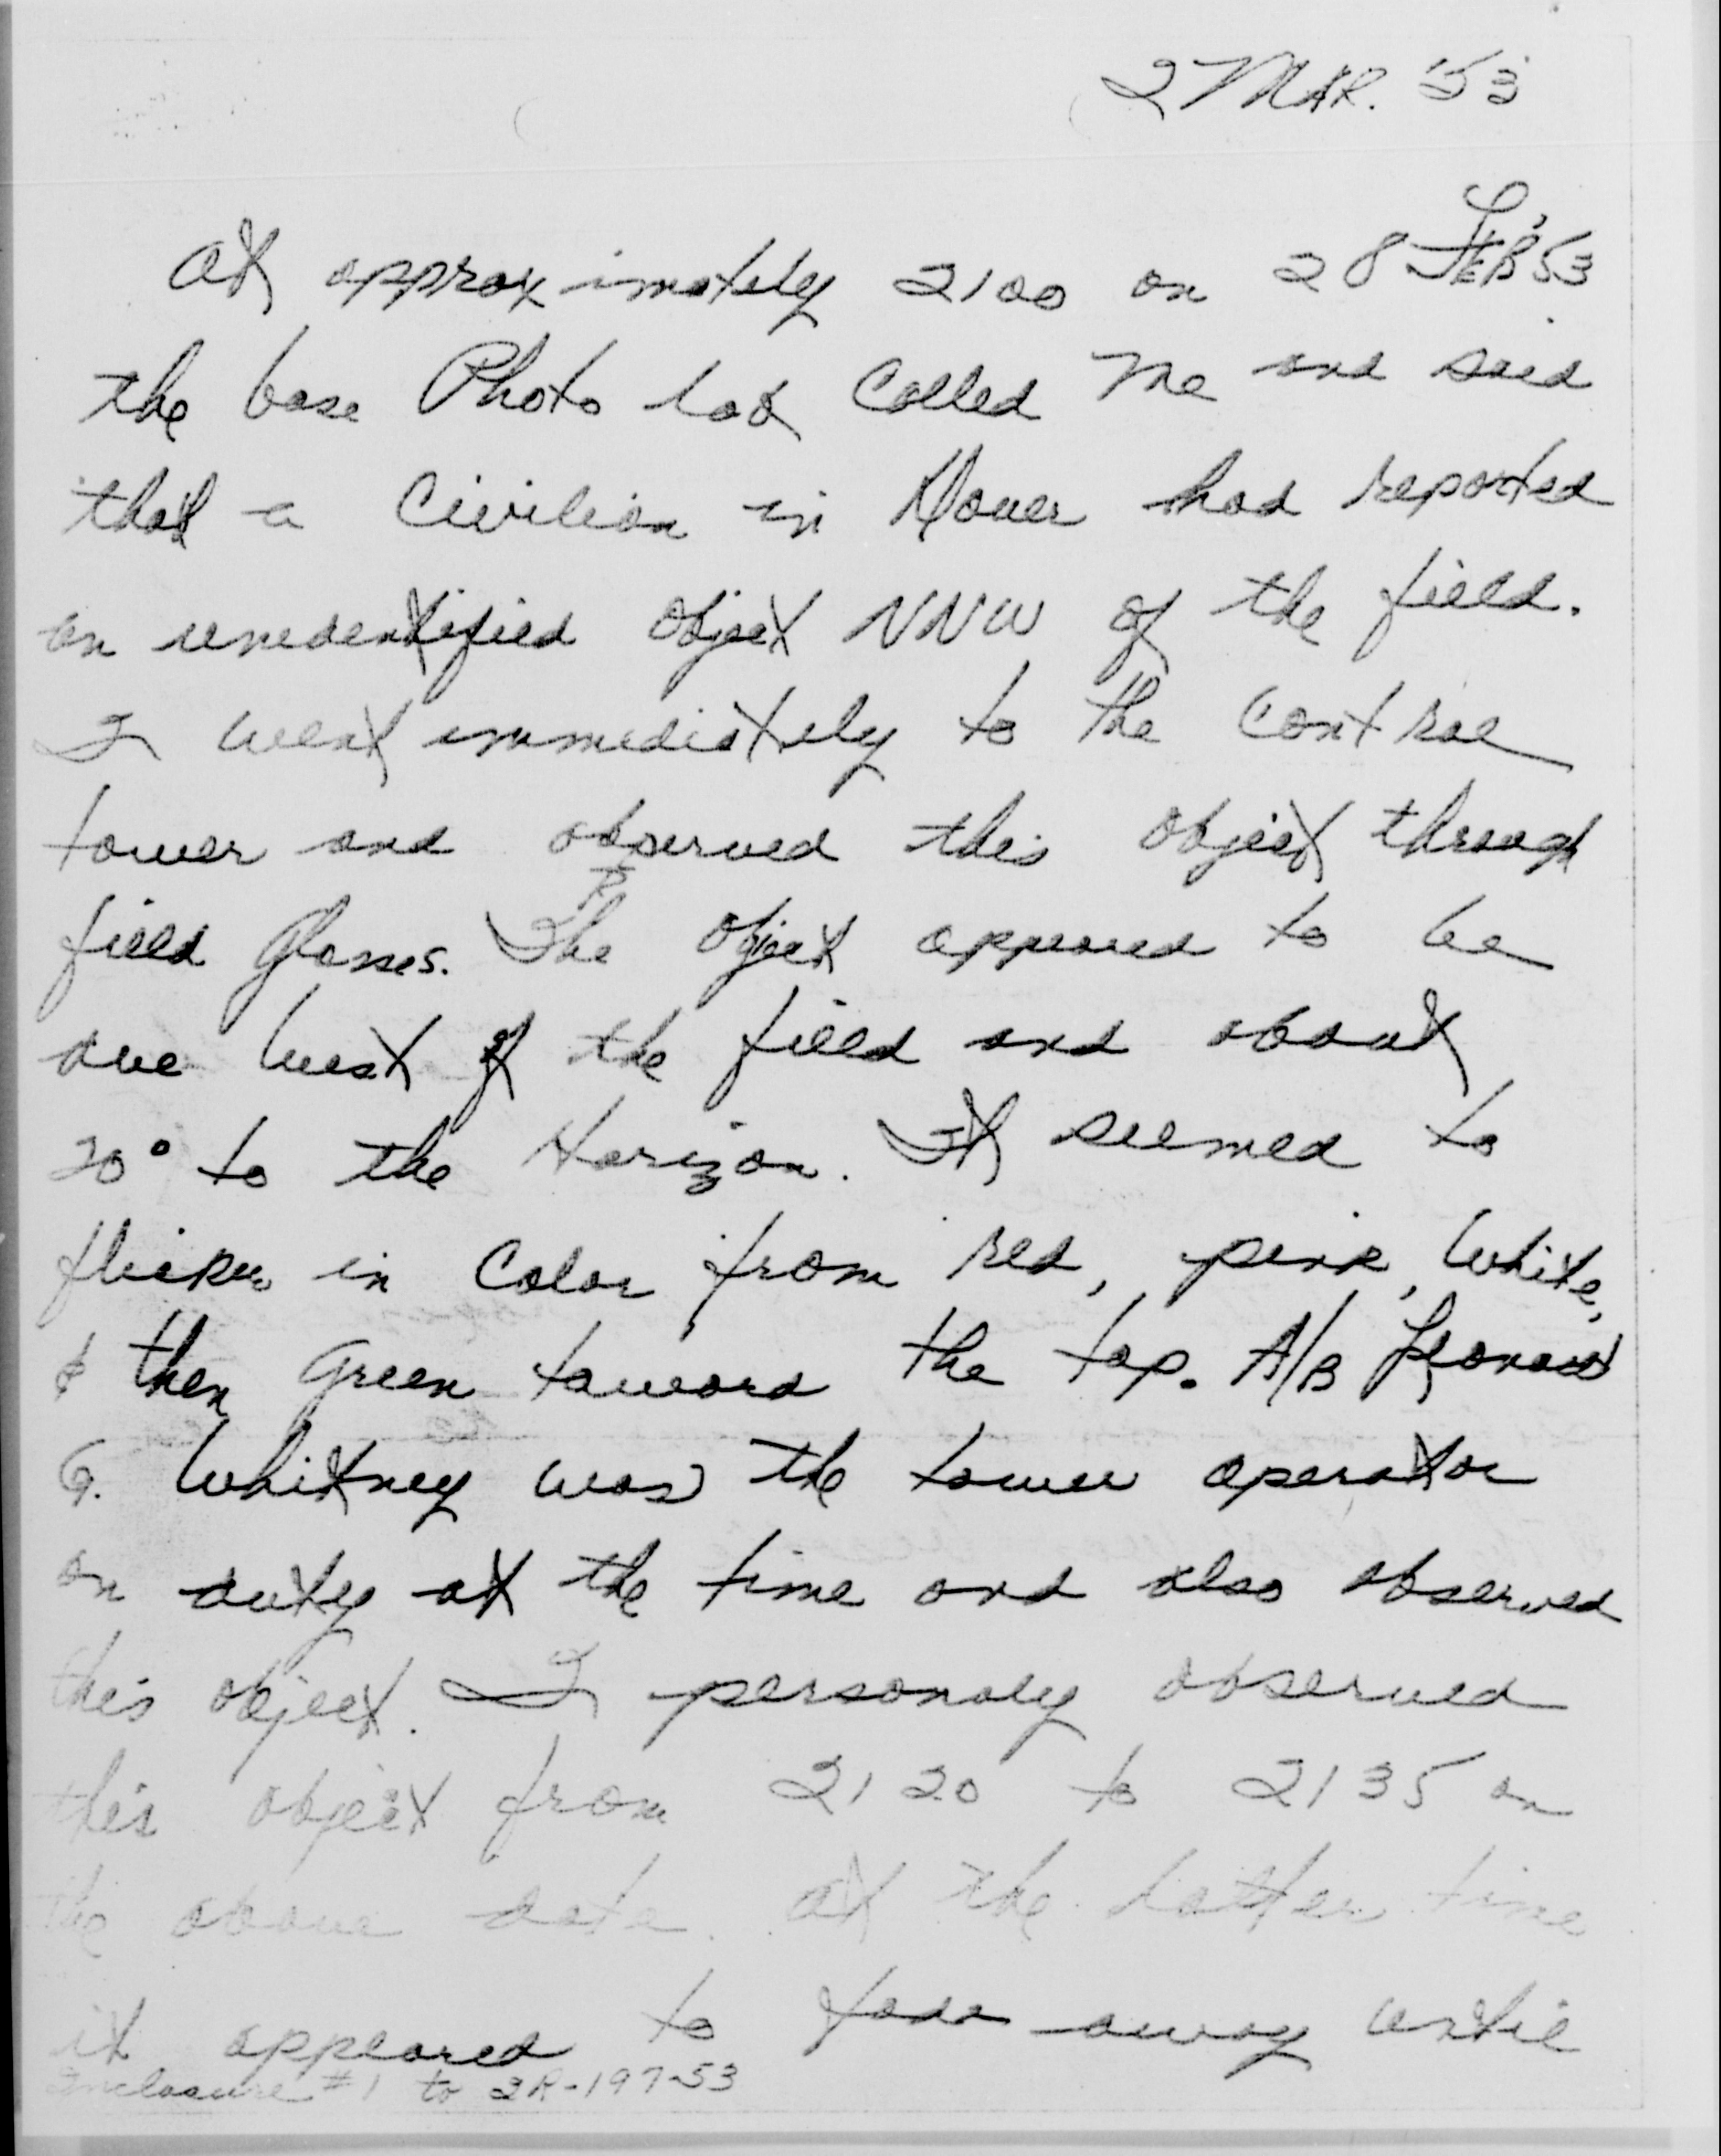 2 MAR. '53
At approximately 2100 on 28 FEB, '53
the base Photo lab called me and said
that a Civilian in Dover had reported
an unedentified object NNW of the field.
I went immediately to the control
tower and observed this object through
field glasses. The object appeared to be
due west of the field and about
20° to the Horizon. It seemed to
flicker in Color from red, pink, white,
& then Green toward the top. A/B Leonard
G. Whitney was the tower operator
on duty at the time and also observed
this object. I personaly observed
this object from 2120 to 2135 on
the above date. At the latter time
it appeared to fade away until
Enclosure #1 to IR-197-53